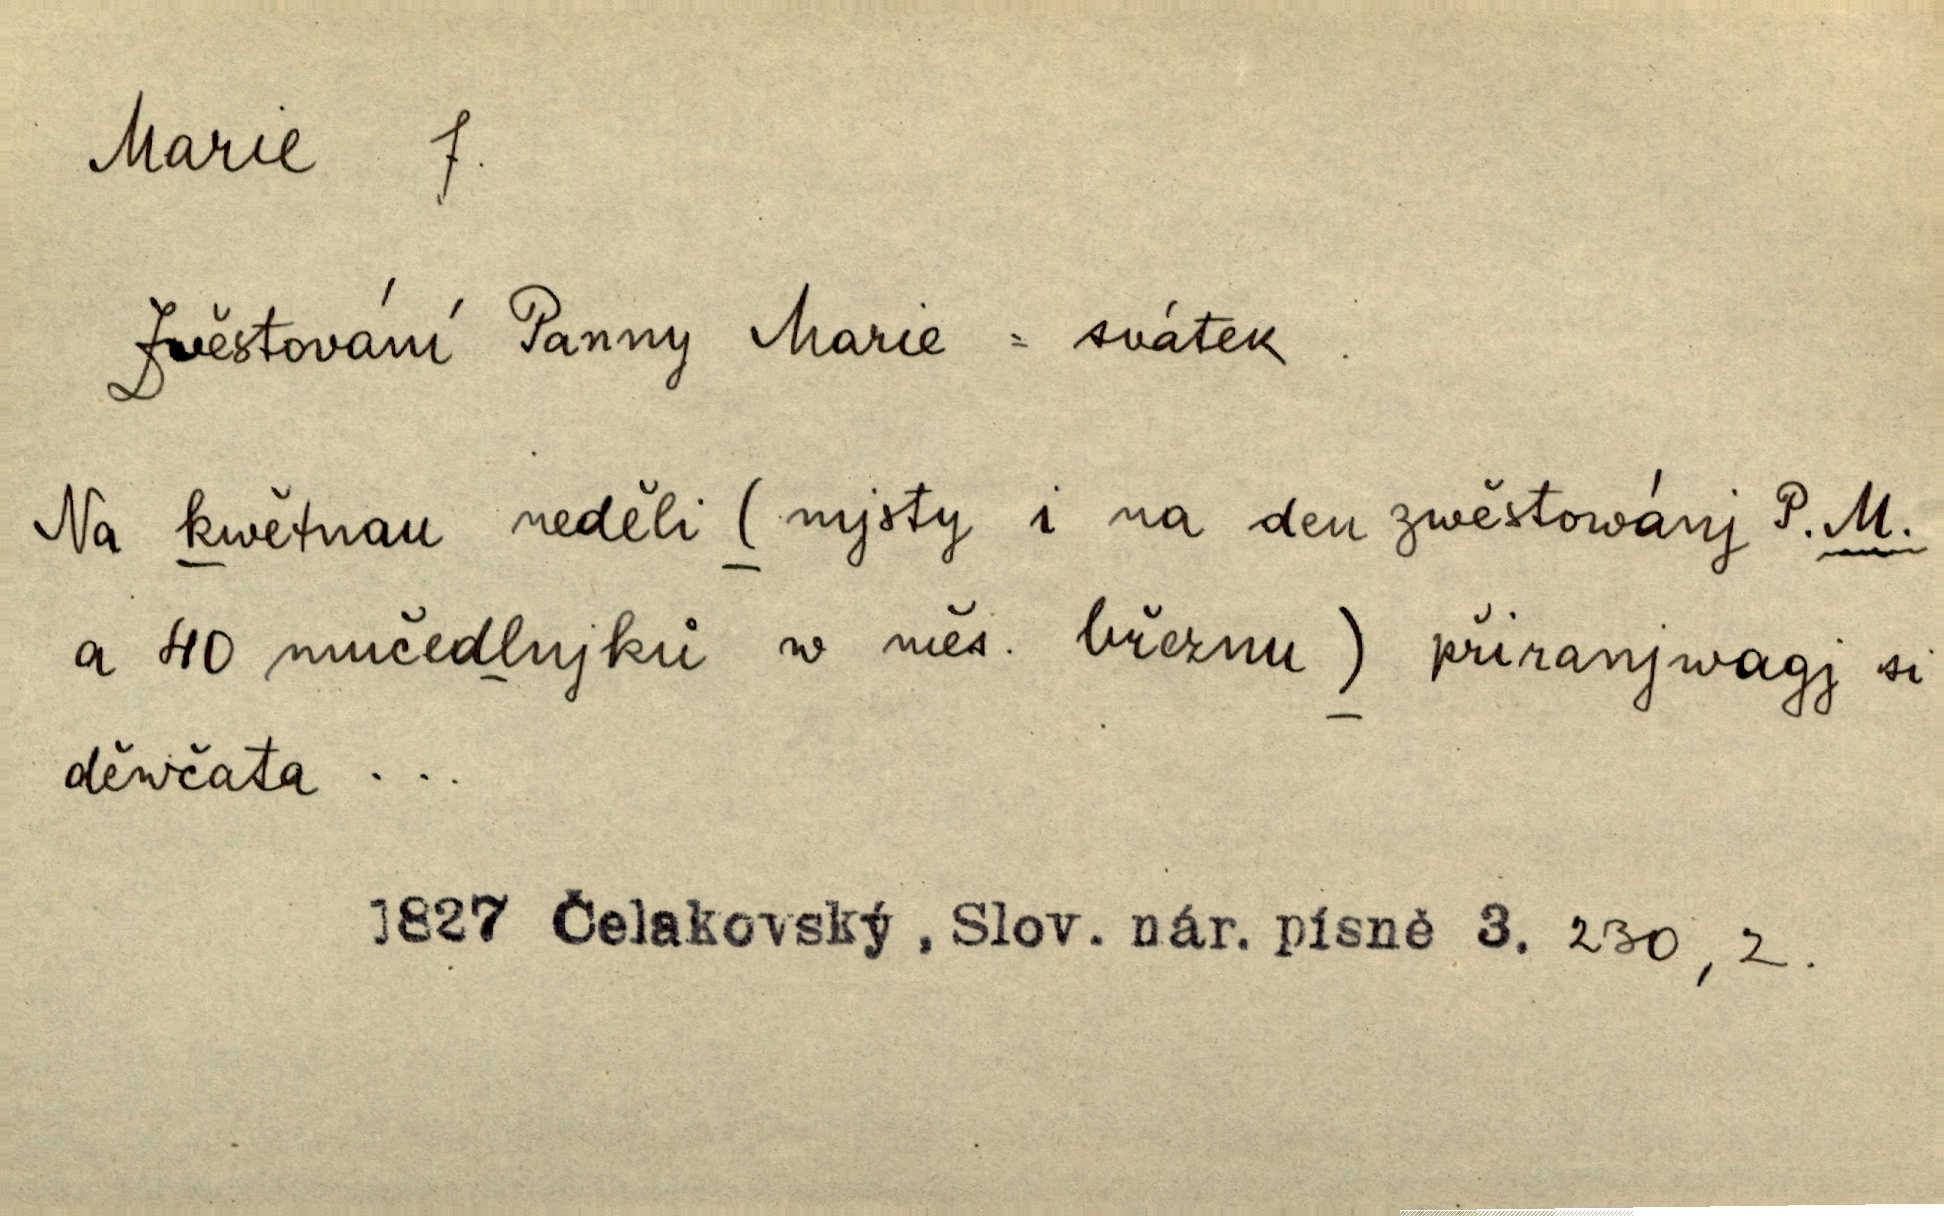 Marie f.
Zvěstování Panny Marie = svátek.
Na kwětnau neděli (mjsty i na den zwěstowánj P.M.
a 40 mučedlnjků w měs. březnu) přiranjwagj si
děwčata ...
1827 Čelakovský, Slov. nár. písně 3. 230, 2.